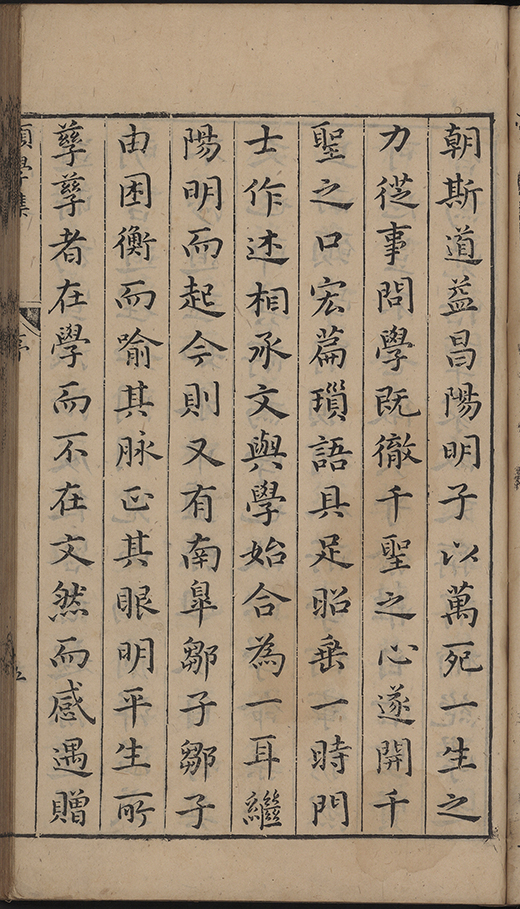 朝斯道益昌陽明子以萬死一生之
力從事問學既徹千聖之心遂開千
聖之口宏篇瑣語具足昭垂一時門
士作述相承文與學始合為一耳繼
陽明而起今則又有南臯鄒子鄒子
由困衡而喻其脉正其眼明平生所
孳孳者在學而不在文然而感遇贈
願學集
序
五